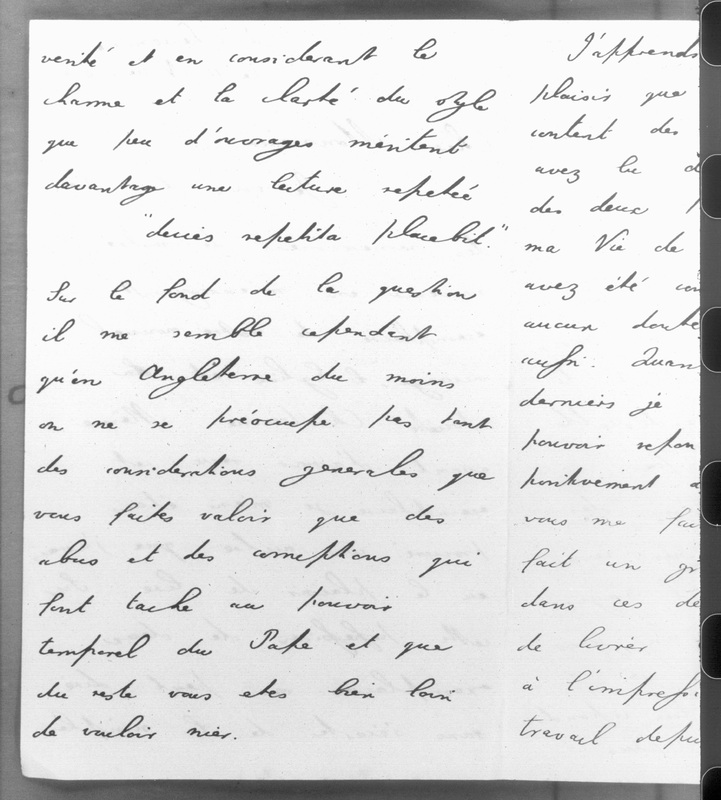 verité et en considerant le
charme et la clarté du style
que peu d'ouvrages méritent
davantage une lecture repeteé
"decies repetita placebit."
Sur le fond de la question
il me semble cependant
qu'en Angleterre du moins
on ne se préoccupe pas tant
des considerations generales que
vous faites valoir que des
abus et des corruptions qui
font tache au pouvoir
temporel du Pape et que
du reste vous etes bien loin
de vouloir nier.
J'apprends
plaisir que
content des
avez lu d
des deux
ma Vie de
avez été con
aucun doute
aussi. Quan
derniers je
pouvoir repon
positivement a
vous me fai
fait un gr
dans ces de
de livrer
à l'impressi
travail depu